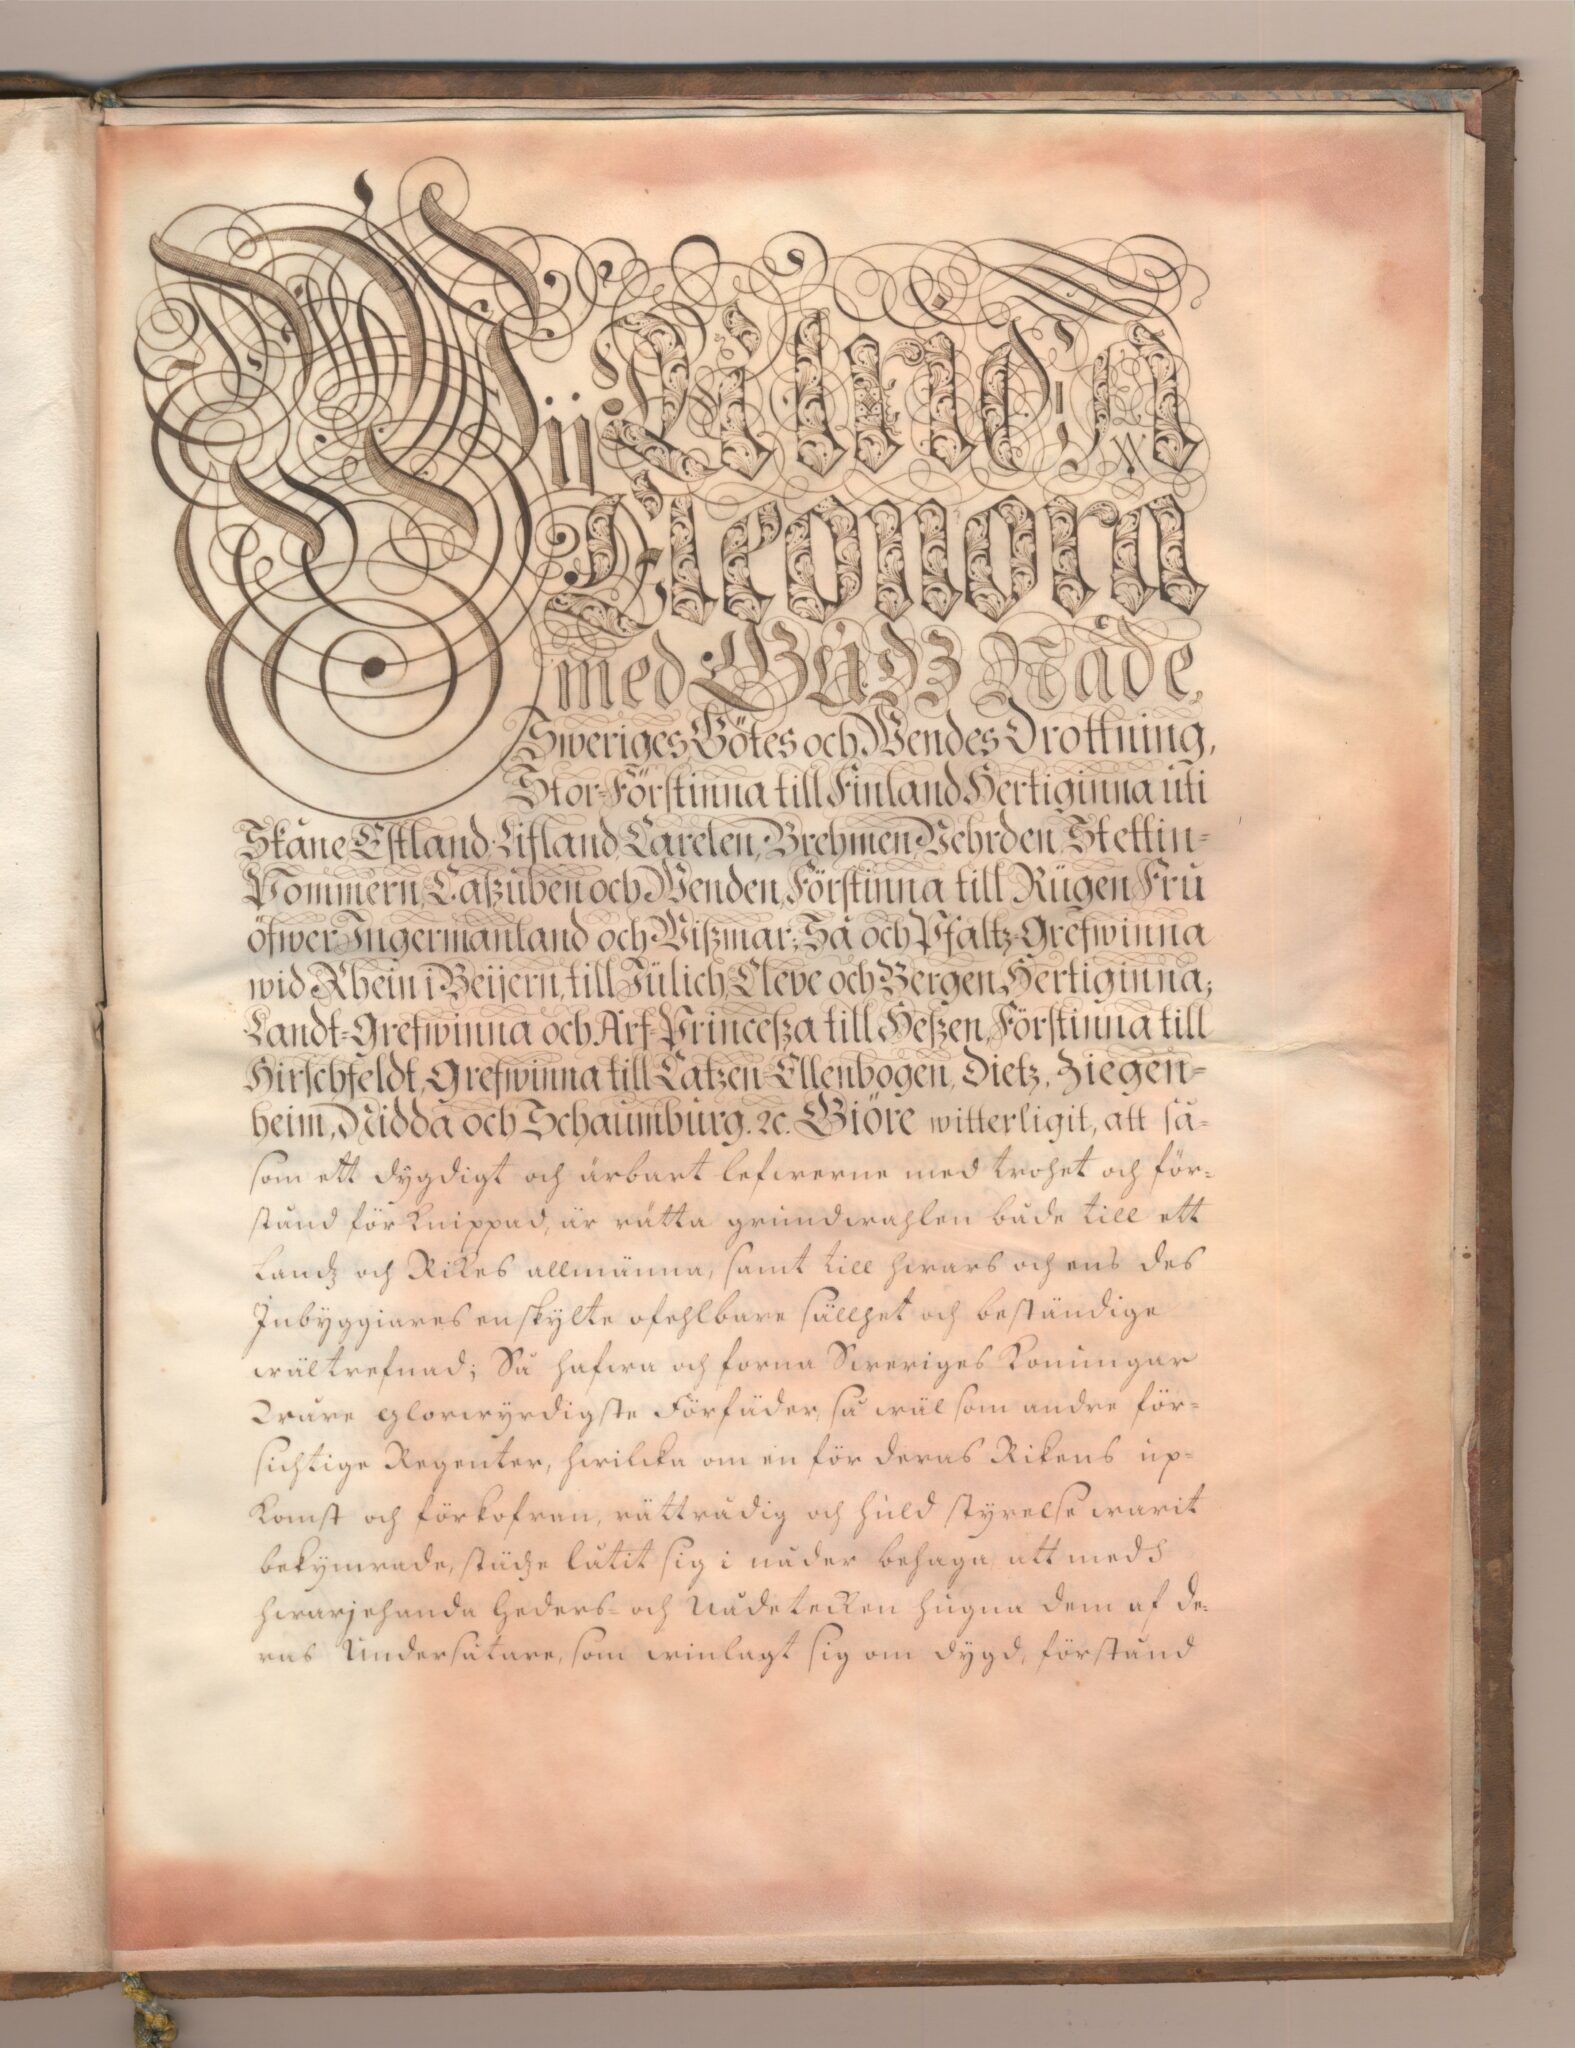 Wii Ulrica
Eleonora
med Gudz Nåde,
Sweriges, Götes och Wendes Drottning,
Stor-Förstinna till Finland, Hertiginna uti
Skåne, Estland, Lifland, Carelen, Brehmen, Vehrden, Stettin-
Pommern, Caßuben och Wenden, Förstinna till Rügen, Fru
öfwer Ingermanland och Wißmar; Så och Pfaltz-Grefwinna
wid Rhein i Beijern, till Jülich, Cleve och Bergen Hertiginna;
Landt-Grefwinna och Arf-Princeßa till Heßen, Förstinna till
Hirschfeldt, Grefwinna till Catzen-Ellenbogen, Dietz, Ziegen-
heim, Nidda och Schaumburg. ꝛc. Giöre witterligit, att så-
som ett dygdigt och ärbart lefwerne med trohet och för-
stånd förknippad, är rätta grundwahlen både till ett
Landz och Rikes allmänna, samt till hwars och ens des
Inbyggiares enskylte ofehlbare sällhet och beständige
wältrefnad; Så hafwa och forna Sweriges Konungar
Wåre glorwyrdigste Förfäder, så wäl som andre för-
sichtige Regenter, hwilcka om en för deras Rikens up-
komst och förkofran, rättrådig och huld styrelse warit
bekymrade, städze låtit sig i nåder behaga, att med
hwarjehanda Heders- och Nådetecken hugna dem af de-
ras Undersåtare, som winlagt sig om dygd, förstånd